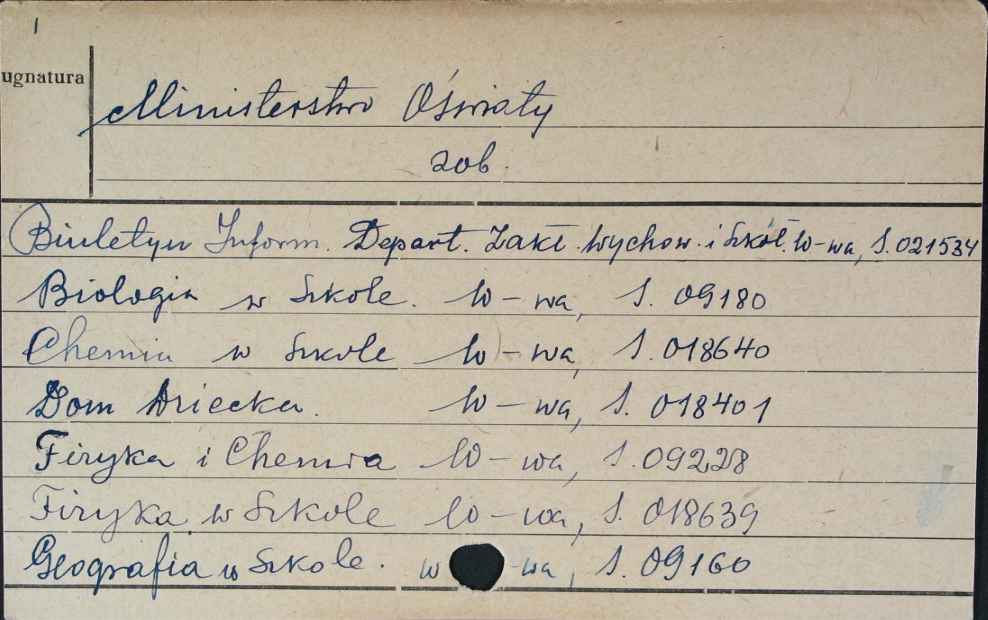 1
ugnatura
Ministerstwo Oświaty
zob.
Biuletyn Inform. Depart. Zakł. Wychow. i Szkół. W-wa, S. 021534
Biologia w Szkole. W-wa, S. 09180
Chemia w Szkole W-wa, S. 018640
Dom Dziecka. W-wa, S. 018401
Fizyka i Chemia W-wa, S. 09228
Fizyka w Szkole W-wa, S. 018639
Geografia w Szkole. W-wa, S. 09160